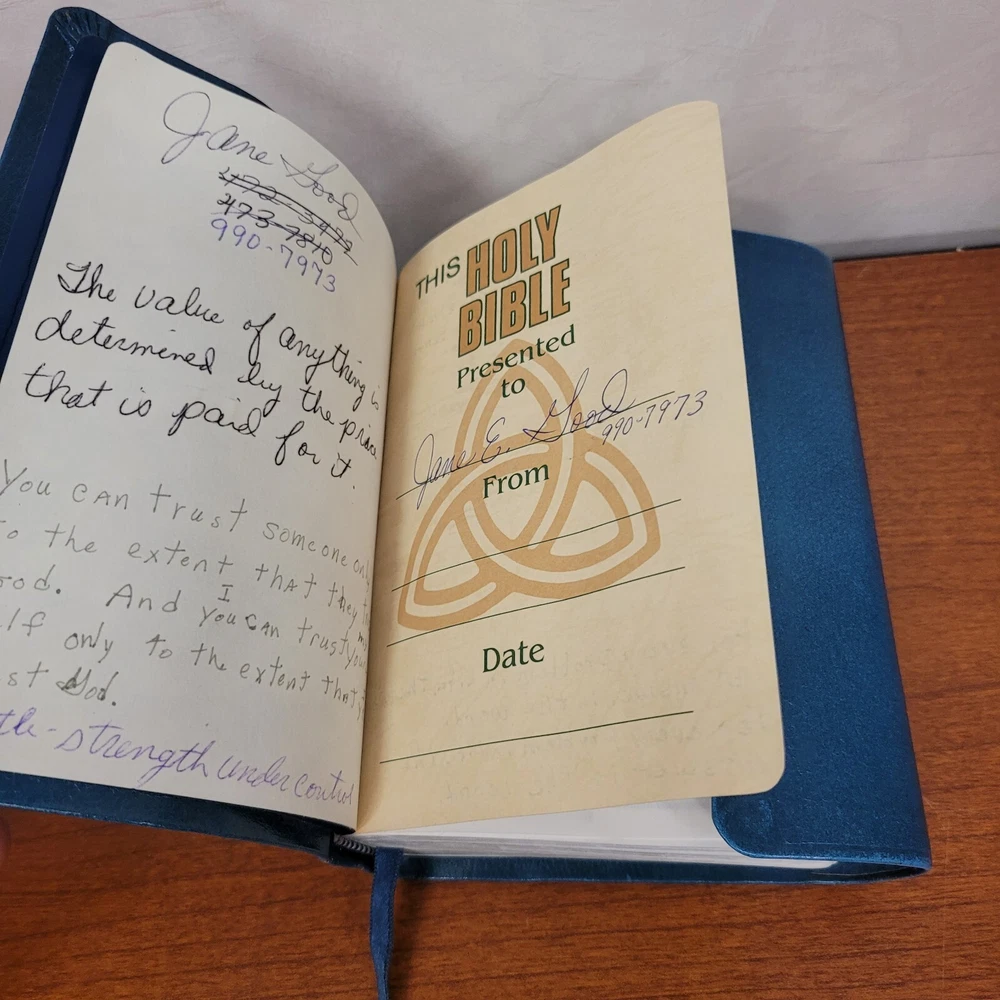 Jane Good
473-7810
990-7973
The value of anything is
determined by the price
that is paid for it.
You can trust someone only
to the extent that they
God. And I
you can trust
only to the extent that
God.
strength under control
THIS HOLY
BIBLE
Presented
to
Jane E. Good
990-7973
From
Date